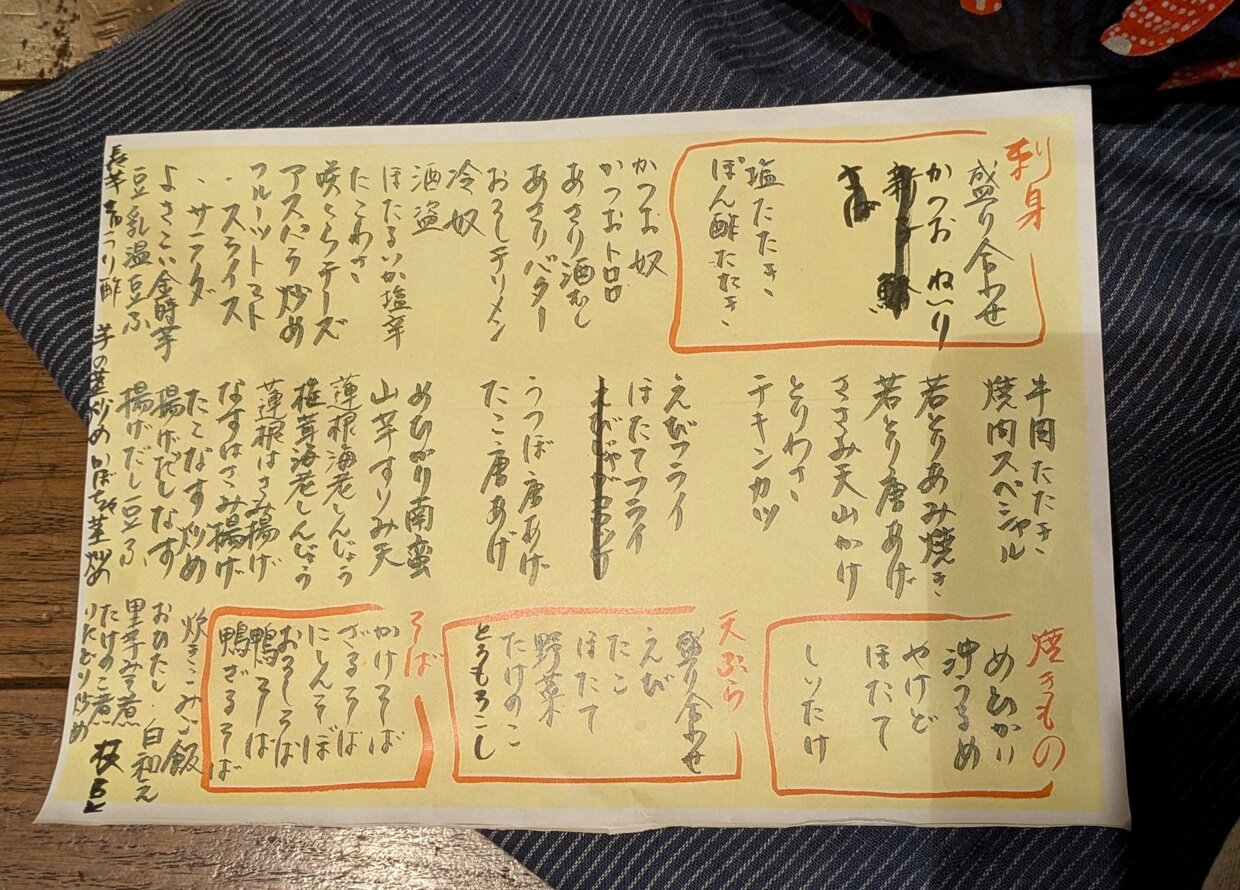 刺身
盛り合わせ
かつお ねいり
さば
塩たたき
ぽん酢たたき
かつお奴
かつおトロロ
あさり酒むし
あさりバター
おろしチリメン
冷奴
酒盗
ほたるいか塩辛
たこわさ
アスパラ炒め
フルーツトマト
・スライス
・サラダ
よさこい金時芋
豆乳温豆ふ
牛肉たたき
焼肉スペシャル
若とりあみ焼き
若とり唐あげ
ささみ天山かけ
とりわさ
チキンカツ
えびフライ
ほたてフライ
うつぼ唐あげ
たこ唐あげ
めひかり南蛮
山芋すりみ天
蓮根海老しんじょう
椎茸海老しんじょう
蓮根はさみ揚げ
なすはさみ揚げ
たこなす炒め
揚げだしなす
揚げだし豆ふ
芋の茎炒め
焼きもの
めひかり
沖うるめ
やけど
ほたて
しいたけ
天ぷら
盛り合わせ
えび
たこ
ほたて
野菜
たけのこ
とうもろこし
そば
かけそば
ざるそば
にしんそば
おろしそば
鴨そば
鴨ざるそば
炊きこみご飯
おひたし 白和え
里芋みそ煮
たけのこ煮